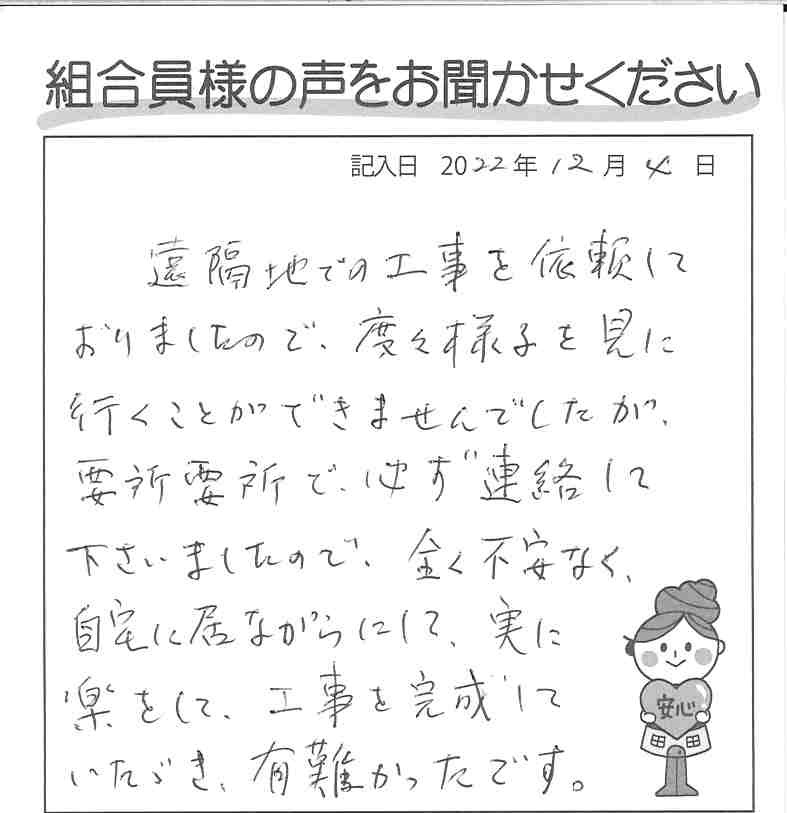 組合員様の声をお聞かせください
記入日 2022年 12月 4日
遠隔地での工事を依頼して
おりましたので、度々様子を見に
行くことができませんでしたが、
要所要所で、必ず連絡して
下さいましたので、全く不安なく、
自宅に居ながらにして、実に
楽をして、工事を完成して
いただき、有難かったです。
安心